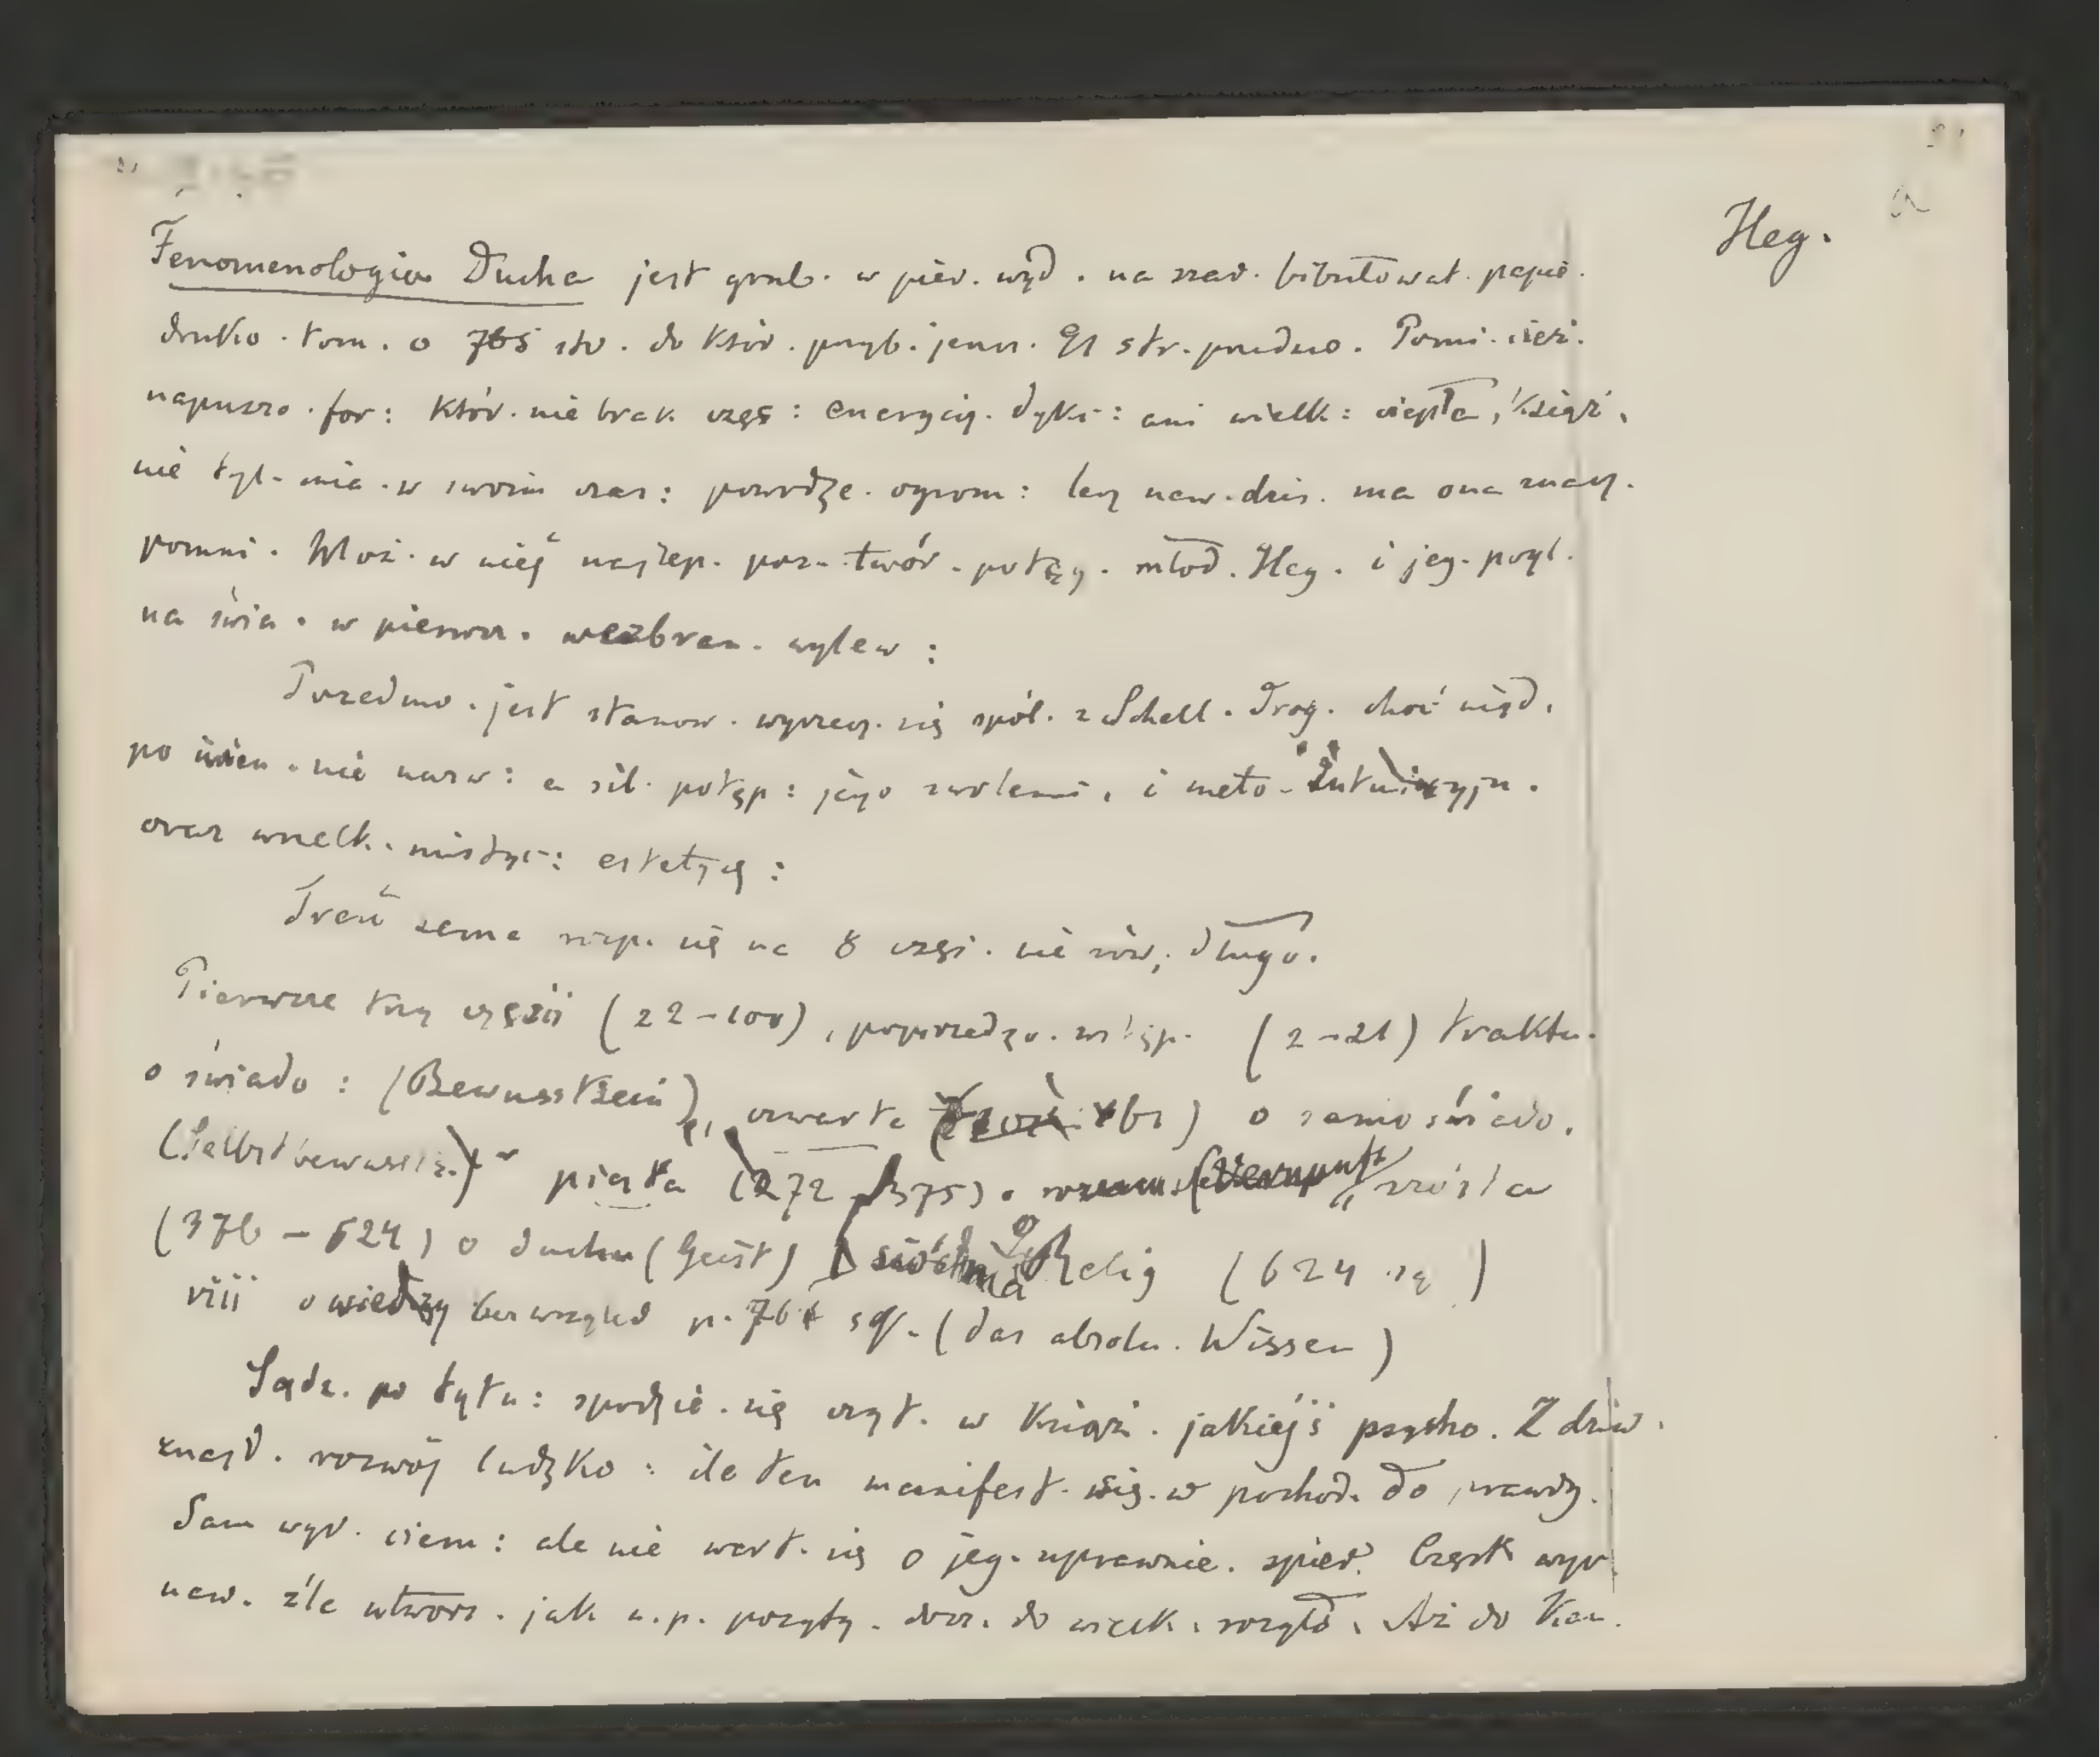 Heg.
Fenomenologia Ducha jest grub. w pier. wyd. na szar. bibułowat. papie.
druko. tom. o 765 str. do któr. przyb. jeszcz. 91 str. przedmo. Pomi. cięż.
napuszo. for: któr. nie brak częs: energicz. dykc: ani wielk: ciepła, książ.
nie tyl. mia. w swoim czas: powodze. ogrom: lecz naw. dziś. ma ona znacz.
pomni. Moż. w niej najlep. poz. twór. potęg. młod. Heg. i jeg. pogl.
na świa. w pierwsz. wezbran. wylew:
Przedmo. jest stanow. wyrzecz. się spół. z Schell. Drog. choć nigd.
po imien. nie nazw: a sil. potęp: jego zwolenni. i meto. intuicyjn.
oraz wszelk. mistyc: estetycz:
Treść sama rozp. się na 8 częś. nie rów. długo.
Pierwsze trzy części (22-100), poprzedzo. wstęp. (2-21) traktu.
o świado: (Bewusstsein), czwarta 161) o samoświado.
(Selbstbewussts.) piąta (172 - 375) o rozum. (Vernunft) szósta
(376 - 624) o duchu (Geist) siódma o Relig (624 sq)
viii o wiedzy bezwzględ p. 764 sq. (das absolu. Wissen)
Sądz. po tytu: spodzie. się czyt. w książ. jakiejś psycho. Z dziw.
znajd. rozwój ludzko: ile ten manifest. się w pochod. do prawdy.
Sam wyr. ciem: ale nie wart. się o jeg. uprawnie. spier. Częst. wyr.
naw. źle utworz. jak n.p. pozyty. docz. do wielk. rozgło. Aż do Kan.